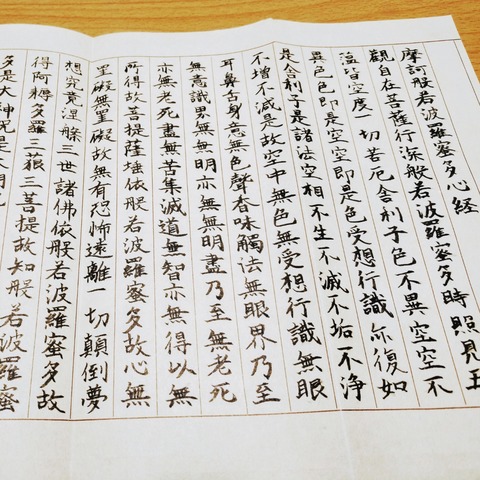 摩訶般若波羅蜜多心経
觀自在菩薩行深般若波羅蜜多時照見五
蘊皆空度一切苦厄舎利子色不異空空不
異色色即是空空即是色受想行識亦復如
是舎利子是諸法空相不生不滅不垢不浄
不増不減是故空中無色無受想行識無眼
耳鼻舌身意無色聲香味觸法無眼界乃至
無意識界無無明亦無無明盡乃至無老死
亦無老死盡無苦集滅道無智亦無得以無
所得故菩提薩埵依般若波羅蜜多故心無
罣礙無罣礙故無有恐怖遠離一切顛倒夢
想究竟涅槃三世諸佛依般若波羅蜜多故
得阿耨多羅三藐三菩提故知般若波羅蜜
多是大神呪是大明